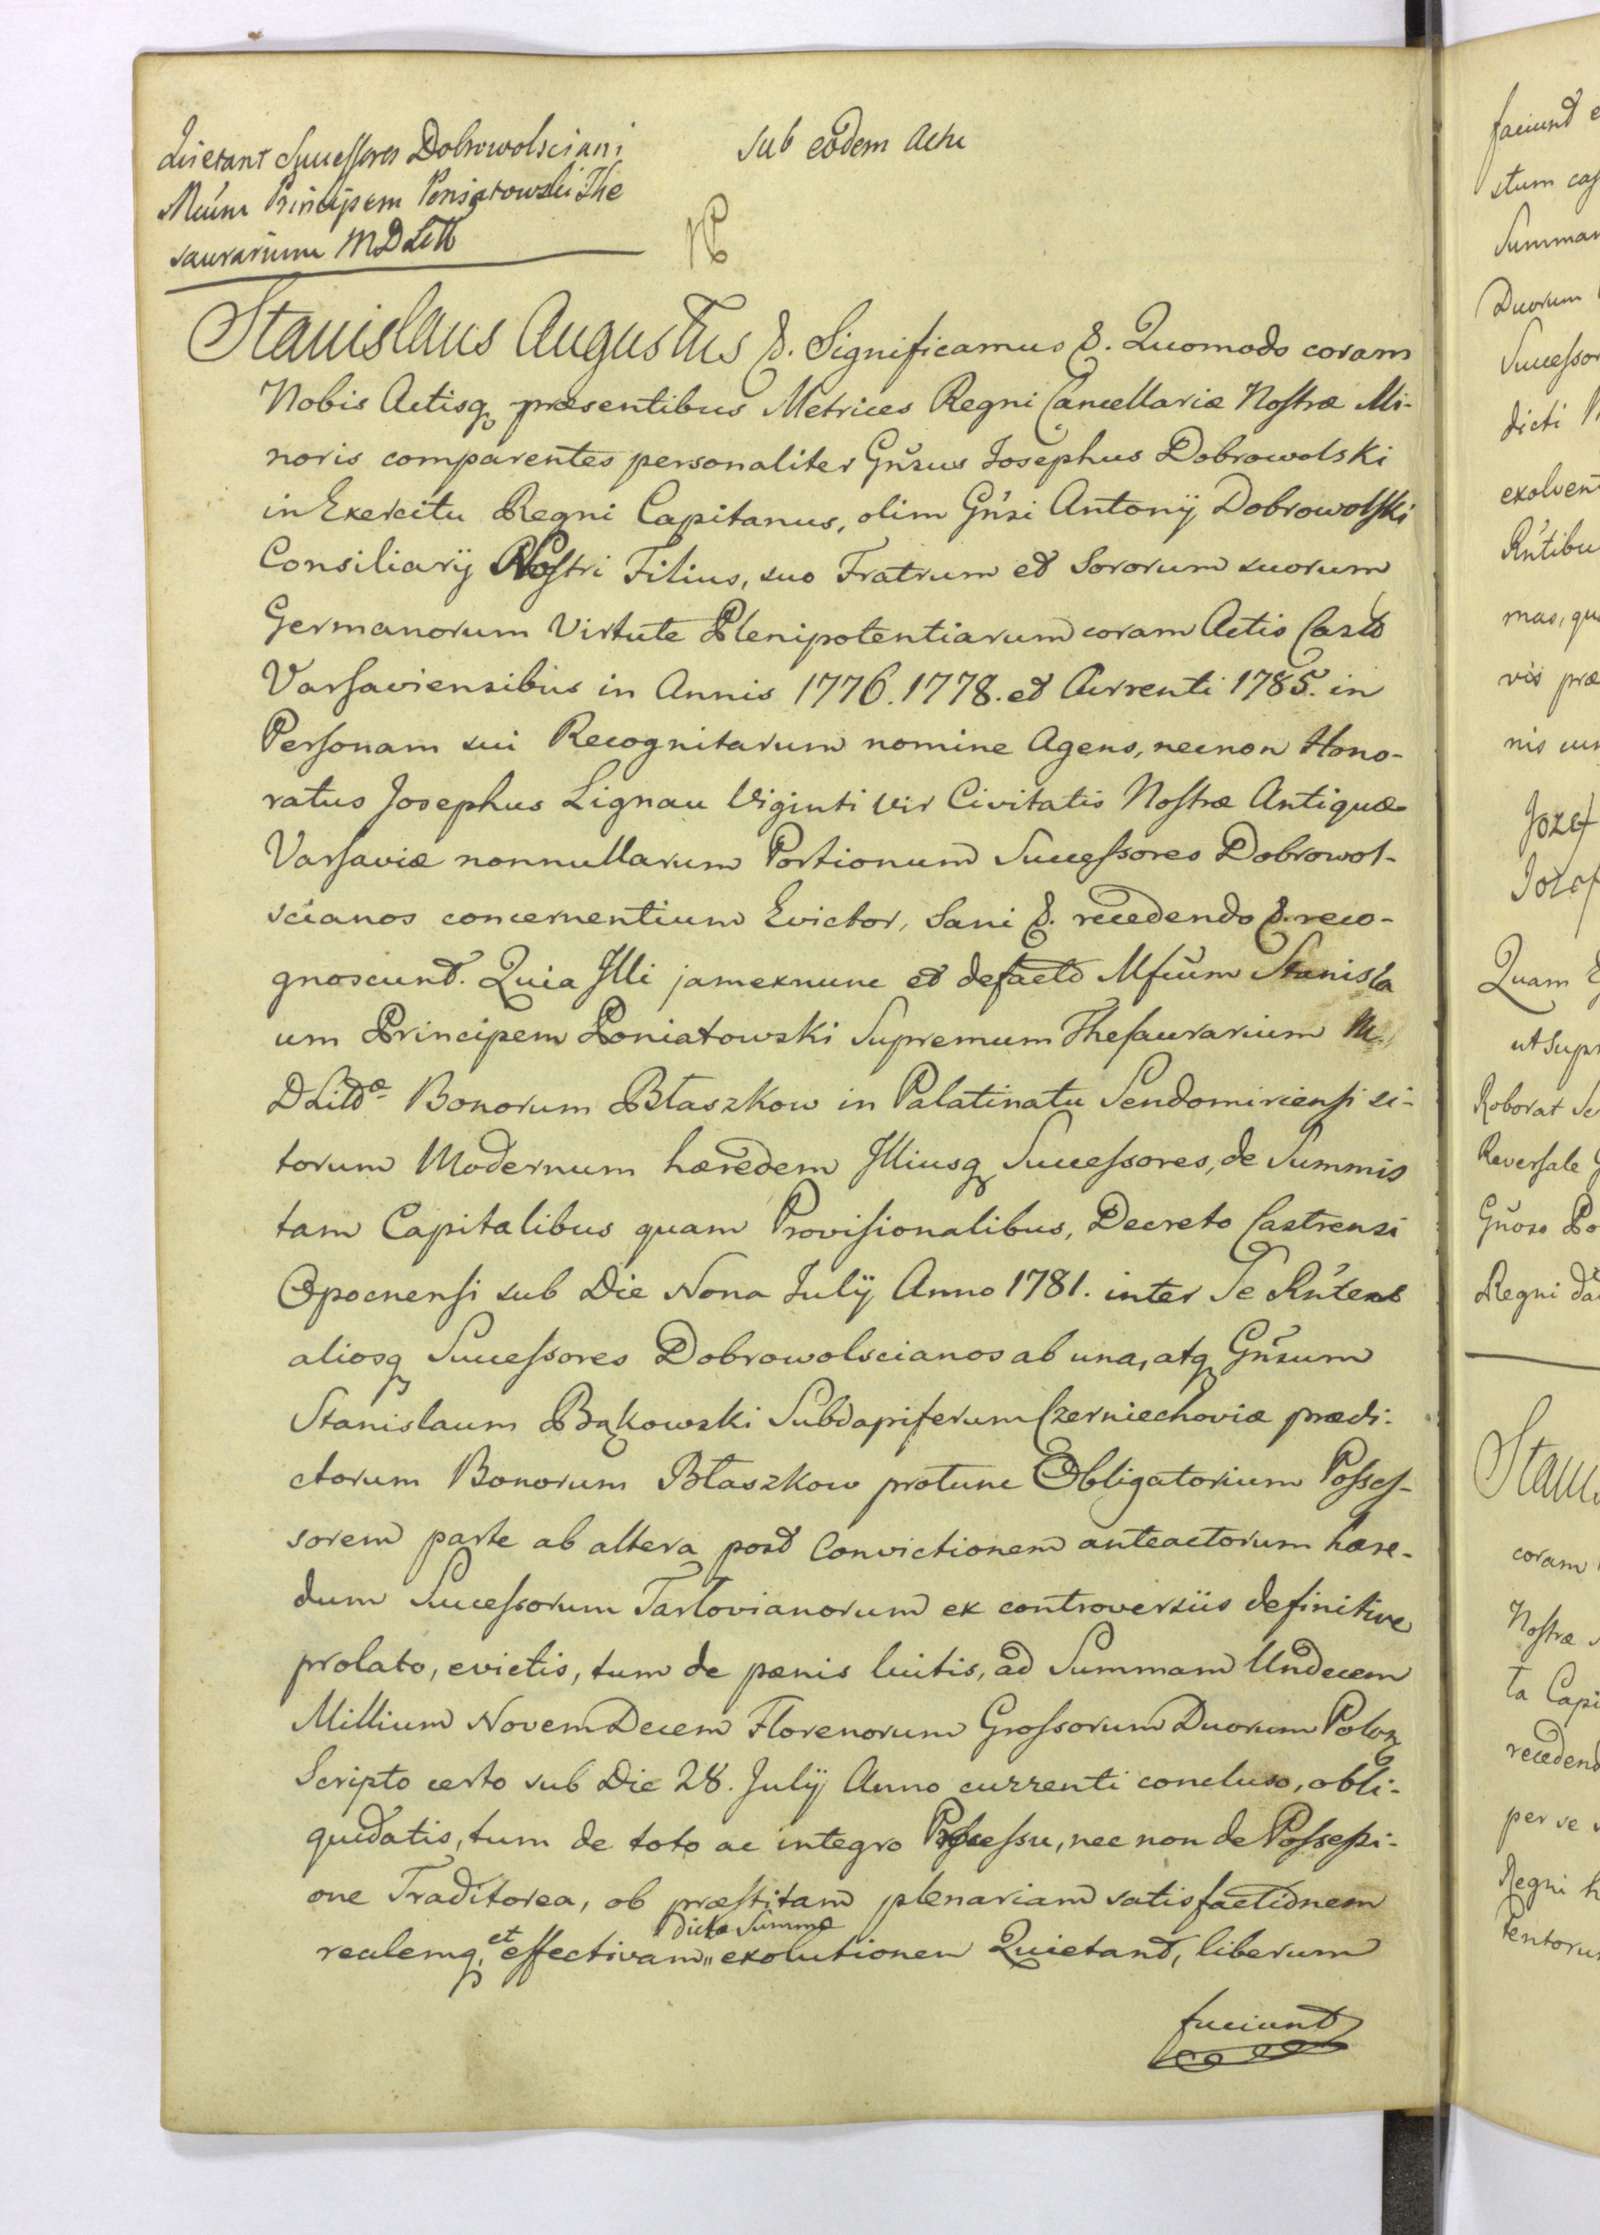 Quietant Successores Dobrowolsciani
Mcum Principem Poniatowski The
saurarium MDLitt
Sub eodem Actu
Stanislaus Augustus &. Significamus &. Quomodo coram
Nobis Actisq præsentibus Metrices Regni Cancellariæ Nostræ Mi-
noris comparentes personaliter Gnsus Josephus Dobrowolski
in Exercitu Regni Capitanus, olim Gnsi Antonij Dobrowolski
Consiliarij Nostri Filius, suo Fratrum et Sororum suorum
Germanorum Virtute Plenipotentiarum coram Actis Castr
Varsaviensibus in Annis 1776. 1778. et Currenti 1785. in
Personam sui Recognitarum nomine Agens, necnon Hono-
ratus Josephus Lignau Viginti Vir Civitatis Nostræ Antiquæ
Varsaviæ nonnullarum Portionum Successores Dobrowol-
scianos concernentium Evictor, Sani &. recedendo &. reco-
gnoscunt. Quia Illi jamexnunc et defacto Mfcum Stanisla
um Principem Poniatowski Supremum Thesaurarium M.
D Litdæ Bonorum Błaszkow in Palatinatu Sendomiriensi si-
torum Modernum hæredem Illiusq Successores, de Summis
tam Capitalibus quam Provisionalibus, Decreto Castrensi
Opocnensi sub Die Nona Julij Anno 1781. inter Se Rntes
aliosq Successores Dobrowolscianos ab una, atq Gnsum
Stanislaum Bąkowski Subdapiferum Czerniechoviæ prædi-
ctorum Bonorum Błaszkow protunc Obligatorium Posses-
sorem parte ab altera post Convictionem anteactorum hære-
dum Successorum Tarlovianorum ex controversiis definitive
prolato, evictis, tum de pænis luitis, ad Summam Undecem
Millium Novem Decem Florenorum Grossorum Duorum Polon
Scripto certo sub Die 28. Julij Anno currenti concluso, obli-
quidatis, tum de toto ac integro Processu, nec non de Possessi-
one Traditorea, ob præstitam plenariam satisfactionem
dictæ Summæ
realemq, et effectivam,, exolutionem Quietant, liberum
faciunt
faciunt
stum
Summam
Duorum
Successor
dicti
exolven
Rntibu
mas, qu
vis præ
nis
Jozef
Jozef
Quam
ut supr
Roborat
Reversale
Gnoso Po
Regni
Stanis
coram
Nostræ
ta Capi
recedend
per se
Regni
tentoru